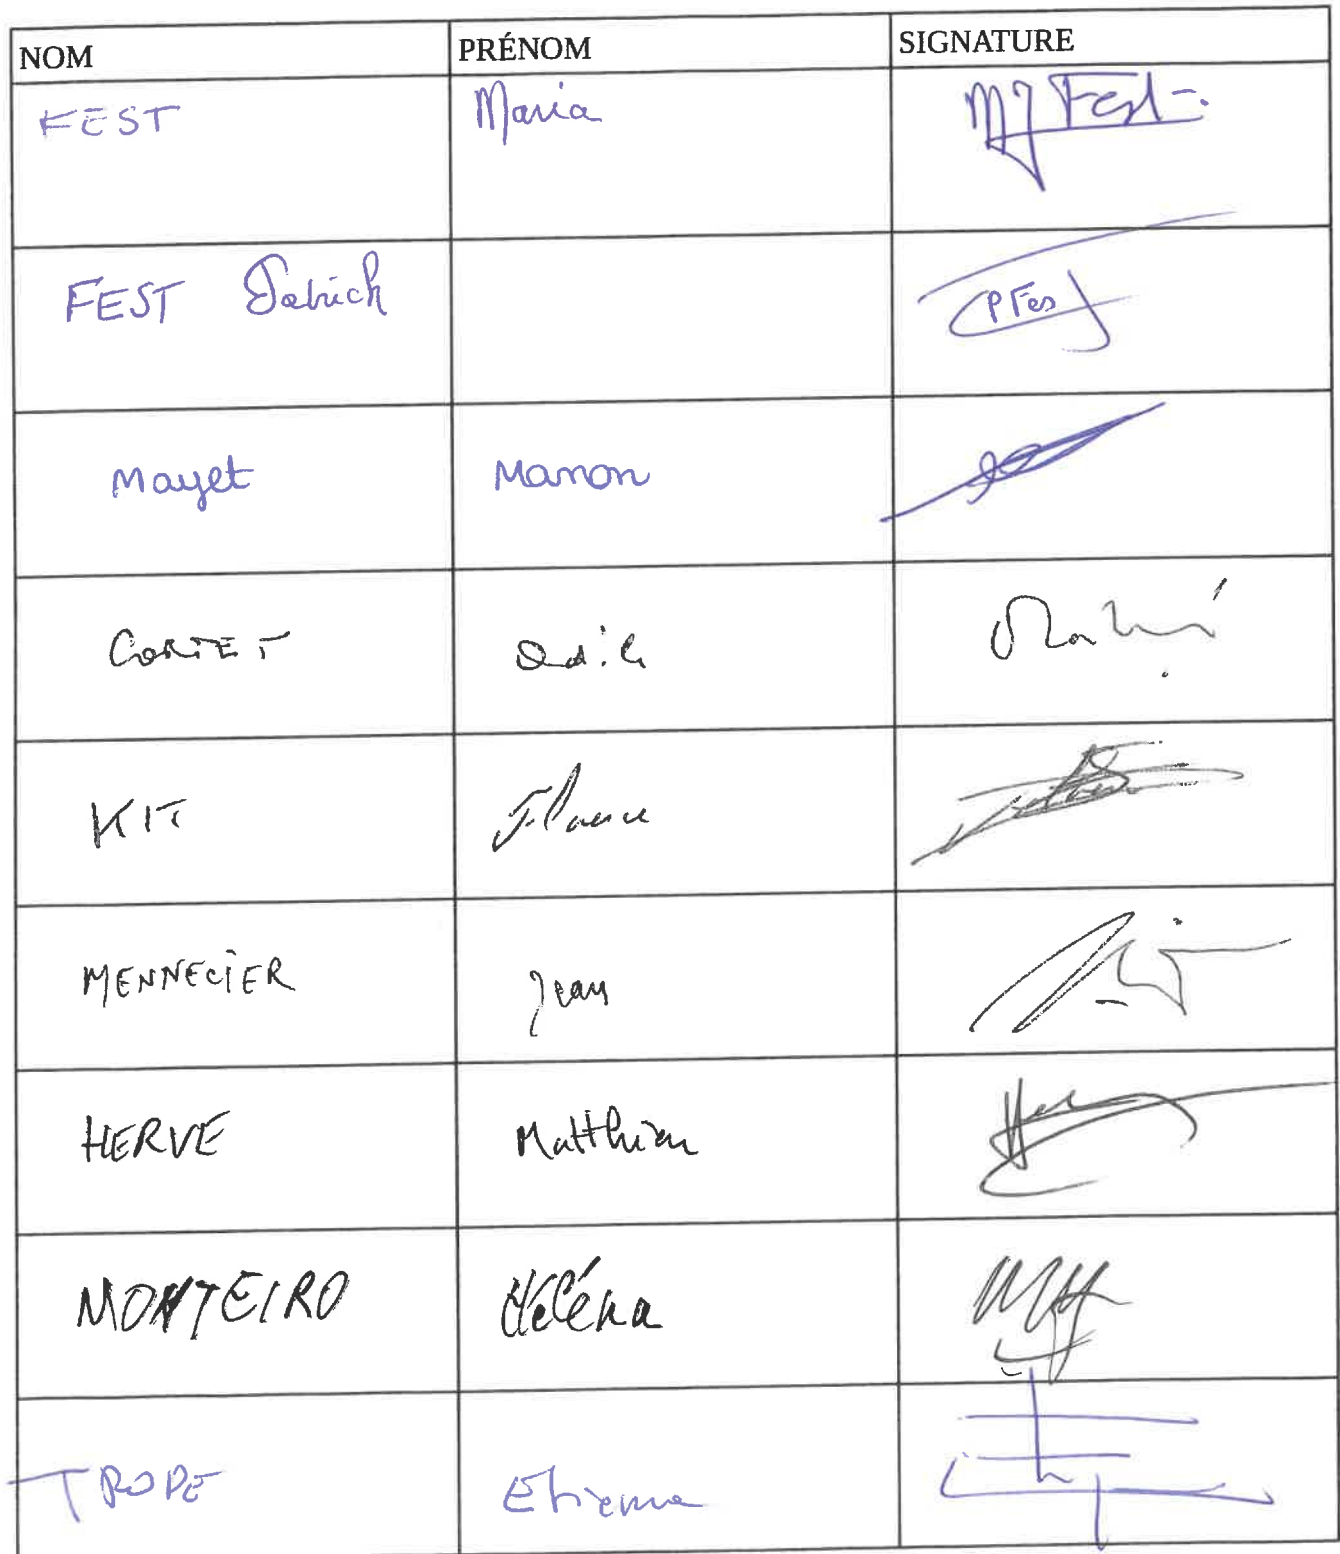 NOM PRÉNOM SIGNATURE
FEST Maria MJ Fest
FEST Patrick P Fes
Mayet Manon
CORTET Odile
KIT France
MENNECIER Jean
HERVE Matthieu
MONTEIRO Héléna
TROPE Etienne